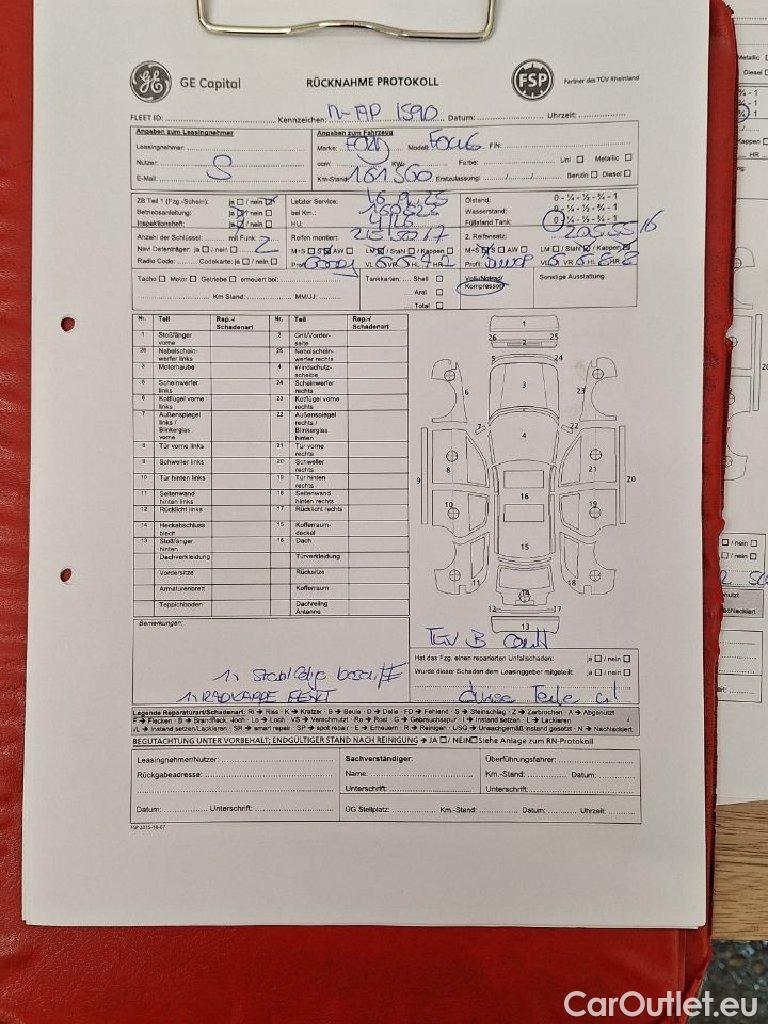 GE Capital
RÜCKNAHME PROTOKOLL
FSP
Partner des TÜV Rheinland
FLEET ID:
Kennzeichen:
Datum:
Uhrzeit:
Angaben zum Leasingnehmer
Leasingnehmer:
Nutzer: S
E-Mail:
Angaben zum Fahrzeug
Marke: FORD Modell: FOCUS FIN:
ccm: KW: Farbe: Uni Metallic
Km-Stand: 161500 Erstzulassung: Benzin Diesel
ZB Teil 1 (Fzg.-Schein): ja / nein
Betriebsanleitung: ja / nein
Inspektionsheft: ja / nein
Letzter Service:
bei Km.:
HU: 4/26
Ölstand: 0 - ¼ - ½ - ¾ - 1
Wasserstand: 0 - ¼ - ½ - ¾ - 1
Füllstand Tank: 0 - ¼ - ½ - ¾ - 1
Anzahl der Schlüssel: mit Funk: 2
Navi Datenträger: ja / nein
Radio Code: Codekarte: ja / nein
Reifen montiert:
M+S S AW LM / Stahl / Kappen
2. Reifensatz: 205 55 16
M+S S AW LM / Stahl / Kappen
Tacho Motor Getriebe erneuert bei:
Km Stand: (MM/JJ):
Tankkarten: Shell
Aral
Total
Kompressor
Sonstige Ausstattung:
Nr. Teil Rep.-/ Schadenart Nr. Teil Rep.-/ Schadenart
1 Stoßfänger vorne 2 Grill/Vorderseite
26 Nebelscheinwerfer links 25 Nebelscheinwerfer rechts
3 Motorhaube 4 Windschutzscheibe
5 Scheinwerfer links 24 Scheinwerfer rechts
6 Kotflügel vorne links 23 Kotflügel vorne rechts
7 Außenspiegel links / Blinkerglas vorne 22 Außenspiegel rechts / Blinkerglas hinten
8 Tür vorne links 21 Tür vorne rechts
9 Schweller links 20 Schweller rechts
10 Tür hinten links 19 Tür hinten rechts
11 Seitenwand hinten links 18 Seitenwand hinten rechts
12 Rücklicht links 17 Rücklicht rechts
14 Heckabschlussblech 15 Kofferraumdeckel
13 Stoßfänger hinten 16 Dach
Dachverkleidung Türverkleidung
Vordersitze Rücksitze
Armaturenbrett Kofferraum
Teppichboden Dachreling Antenne
1
26 2 25
5 24
6 3 23
7 22
4
8 21
9 16 20
10 19
15
11 14 18
12 17
13
Bemerkungen:
1x RADKAPPE FEHLT
Hat das Fzg. einen reparierten Unfallschaden: ja / nein
Wurde dieser Schaden dem Leasinggeber mitgeteilt: ja / nein
Legende Reparaturart/Schadenart: Ri → Riss · K → Kratzer · B → Beule · D → Delle · FD → Fehlend · S → Steinschlag · Z → Zerbrochen · A → Abgenutzt
F → Flecken · B → Brandfleck, -loch · Lo → Loch · VS → Verschmutzt · Ro → Rost · G → Gebrauchsspur · I → Instand setzen · L → Lackieren
I/L → Instand setzen/Lackieren · SR → smart repair · SP → spot repair · E → Erneuern · R → Reinigen · USG → Unsachgemäß instand gesetzt · N → Nachlackiert
BEGUTACHTUNG UNTER VORBEHALT; ENDGÜLTIGER STAND NACH REINIGUNG → JA / NEIN Siehe Anlage zum RN-Protokoll
Leasingnehmer/Nutzer:
Rückgabeadresse:
Datum: Unterschrift:
Sachverständiger:
Name:
Unterschrift:
Überführungsfahrer:
Km.-Stand: Datum:
Unterschrift:
ÜG Stellplatz: Km.-Stand: Datum: Uhrzeit:
FSP 2015-10-07
CarOutlet.eu